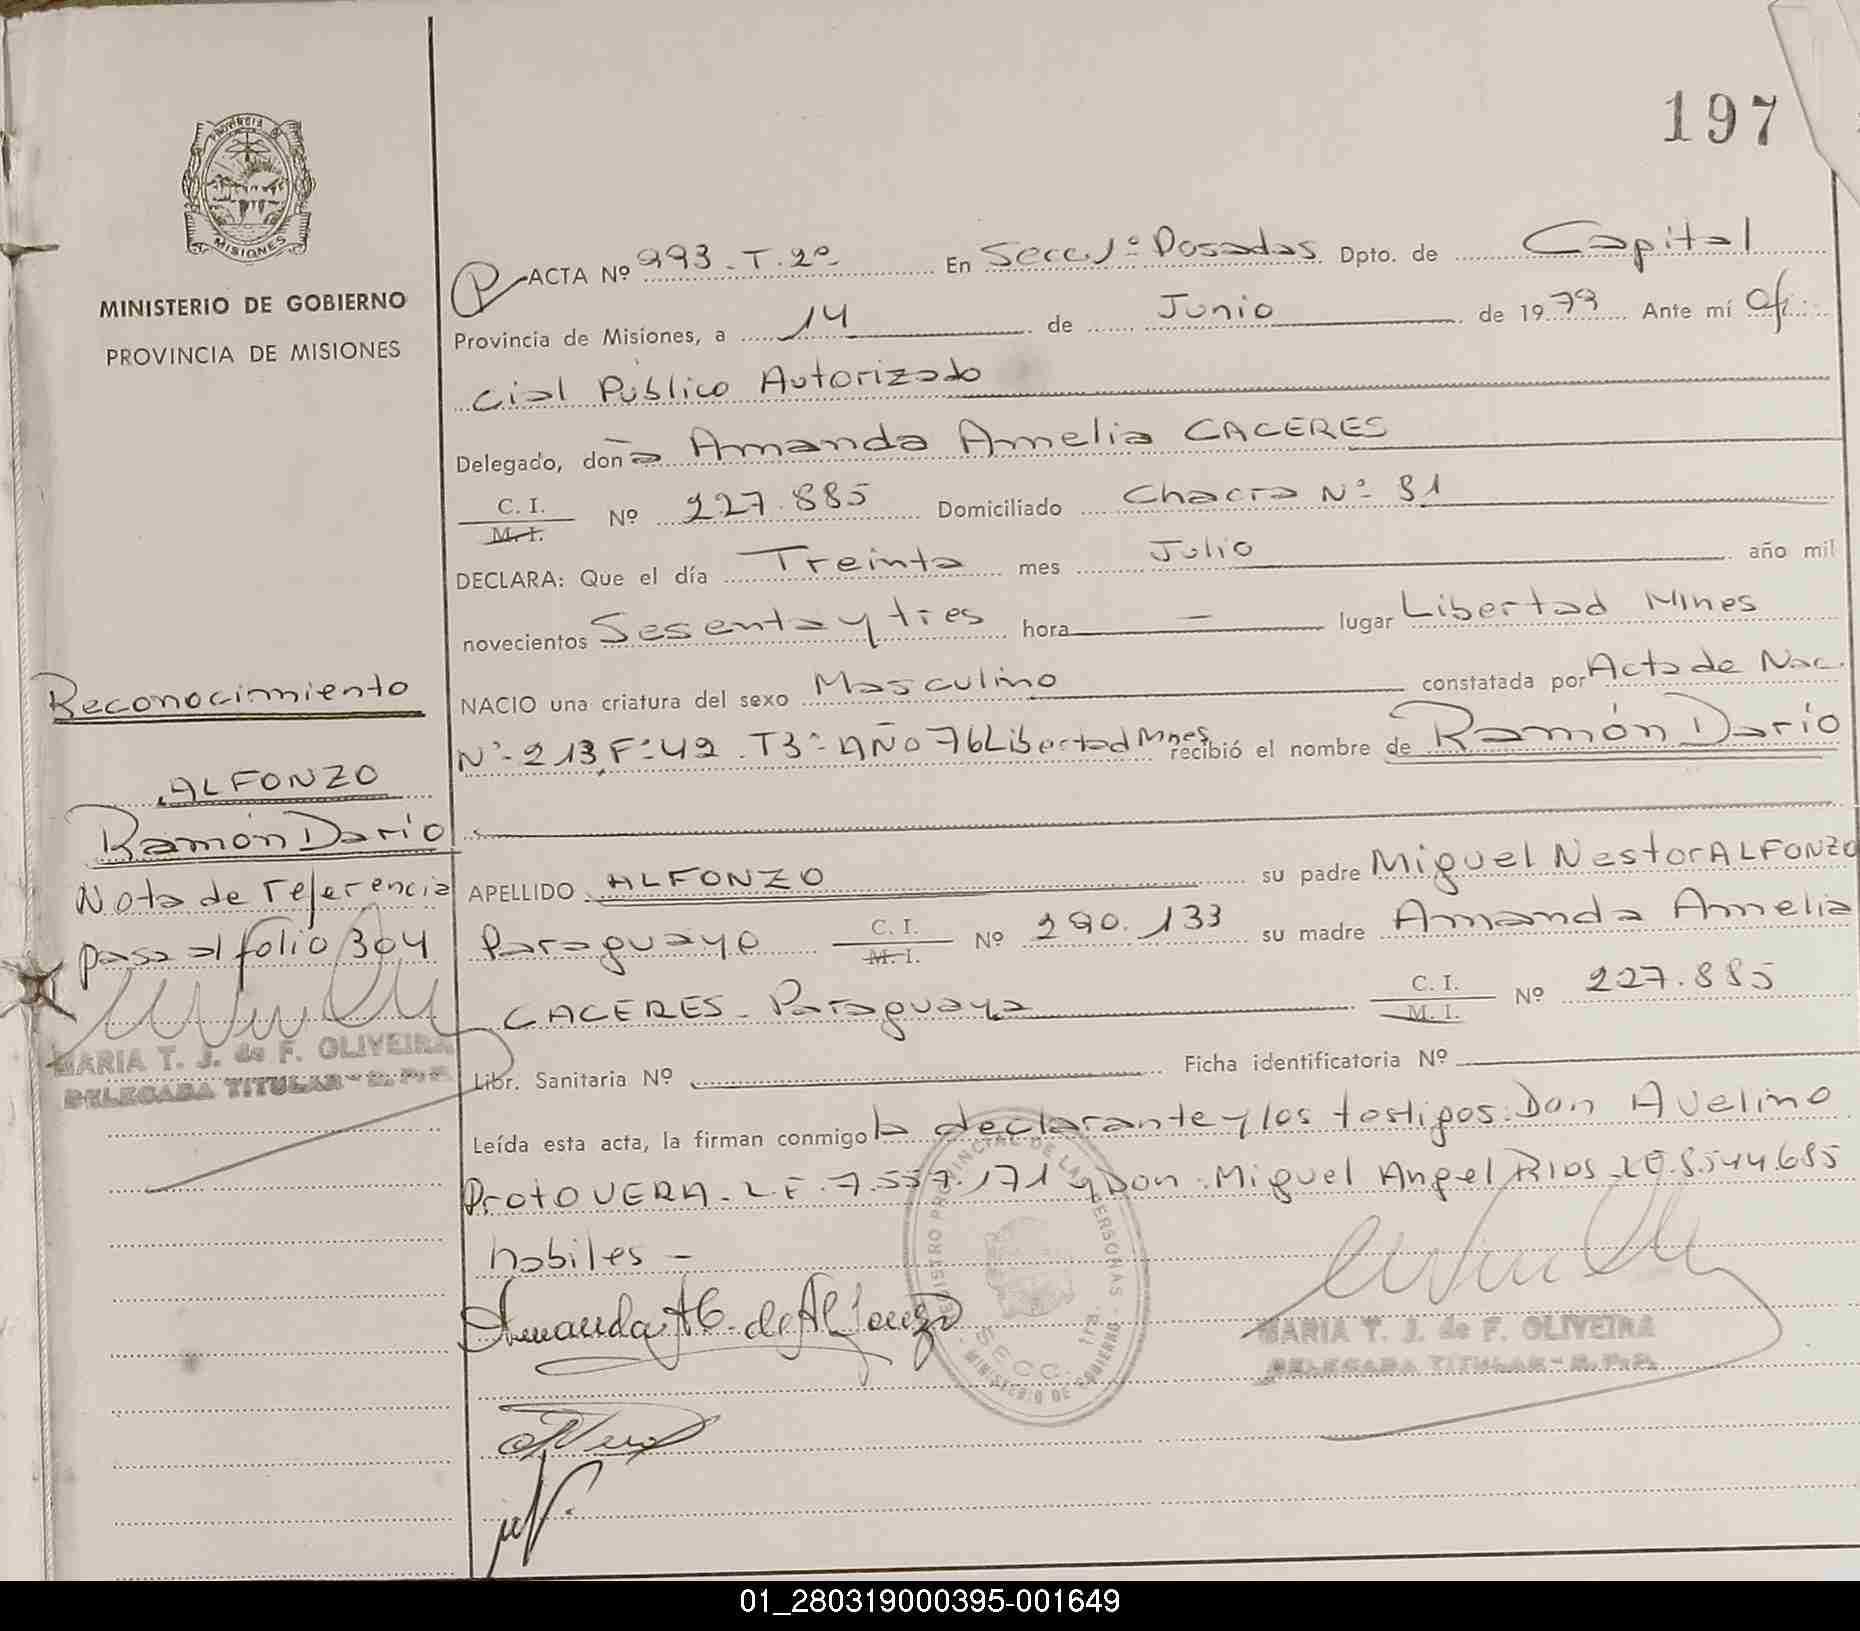 197
PROVINCIA
MISIONES
MINISTERIO DE GOBIERNO
PROVINCIA DE MISIONES
ACTA Nº 993 - T. 2º En Secc 1º Posadas Dpto. de Capital
Provincia de Misiones, a 14 de Junio de 1979 Ante mí Ofi
cial Público Autorizado
Delegado, doña Amanda Amelia CACERES
C. I.
M. I.
Nº 227.885 Domiciliado Chacra Nº 81
DECLARA: Que el día Treinta mes Julio año mil
novecientos Sesenta y tres hora — lugar Libertad Mnes
NACIO una criatura del sexo Masculino constatada por Acta de Nac.
Nº - 213 Fº 42 . T3º AÑO 76 Libertad Mnes recibió el nombre de Ramón Darío
APELLIDO ALFONZO su padre Miguel Nestor ALFONZO
Paraguayo C. I. M. I. Nº 290.133 su madre Amanda Amelia
CACERES - Paraguaya C. I. M. I. Nº 227.885
Libr. Sanitaria Nº Ficha identificatoria Nº
Leída esta acta, la firman conmigo la declarante y los testigos: Don Avelino
Proto VERA - L.E. 7.557.171 y Don Miguel Angel RIOS LE. 8.544.685
habiles -
Amanda A C. de Alfonzo
REGISTRO PROVINCIAL DE LAS PERSONAS
SECC. 1ra.
MINISTERIO DE GOBIERNO
MARIA T. J. de F. OLIVEIRA
DELEGADA TITULAR - R. P. P.
Reconocimiento
ALFONZO
Ramón Darío
Nota de referencia
pasa al folio 304
MARIA T. J. de F. OLIVEIRA
DELEGADA TITULAR - R. P. P.
01_280319000395-001649